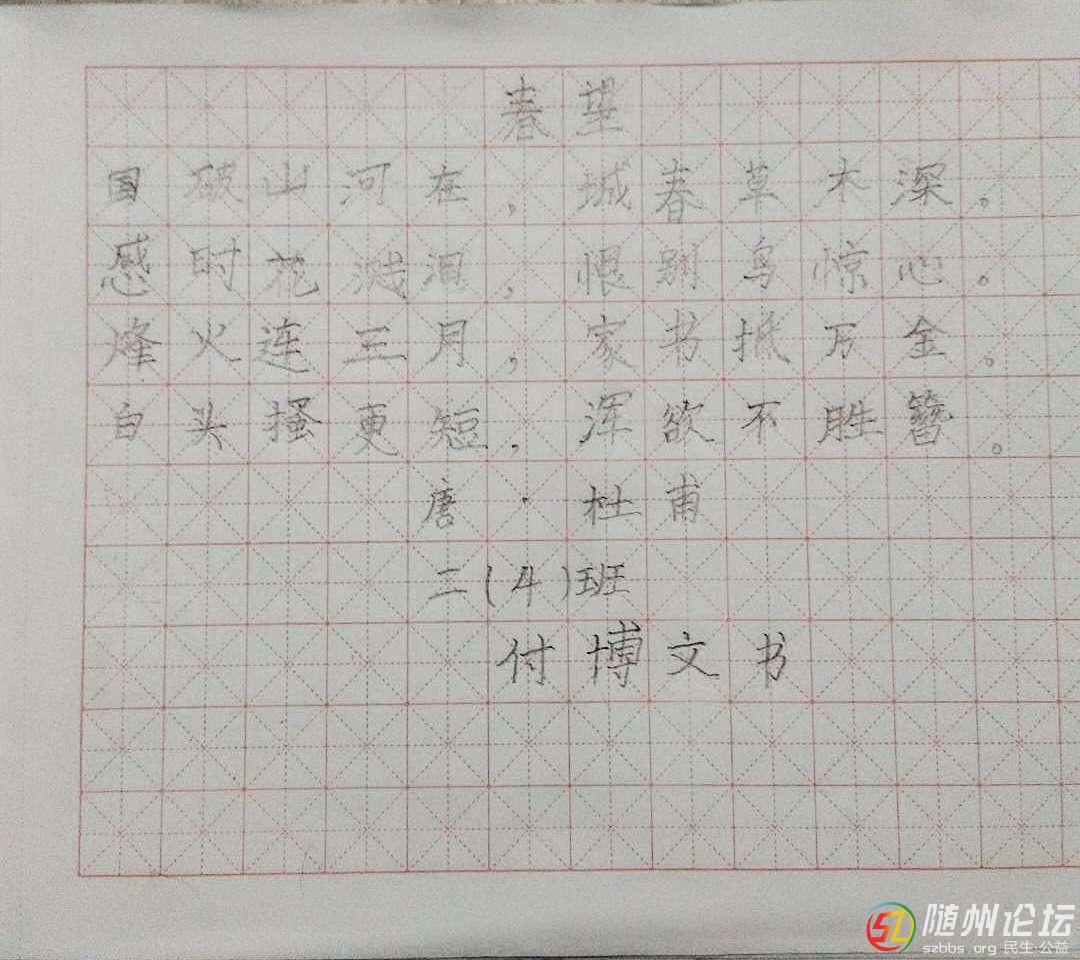 春望
国破山河在，城春草木深。
感时花溅泪，恨别鸟惊心。
烽火连三月，家书抵万金。
白头搔更短，浑欲不胜簪。
唐·杜甫
三(4)班
付博文书
随州论坛
szbbs.org 民生·公益